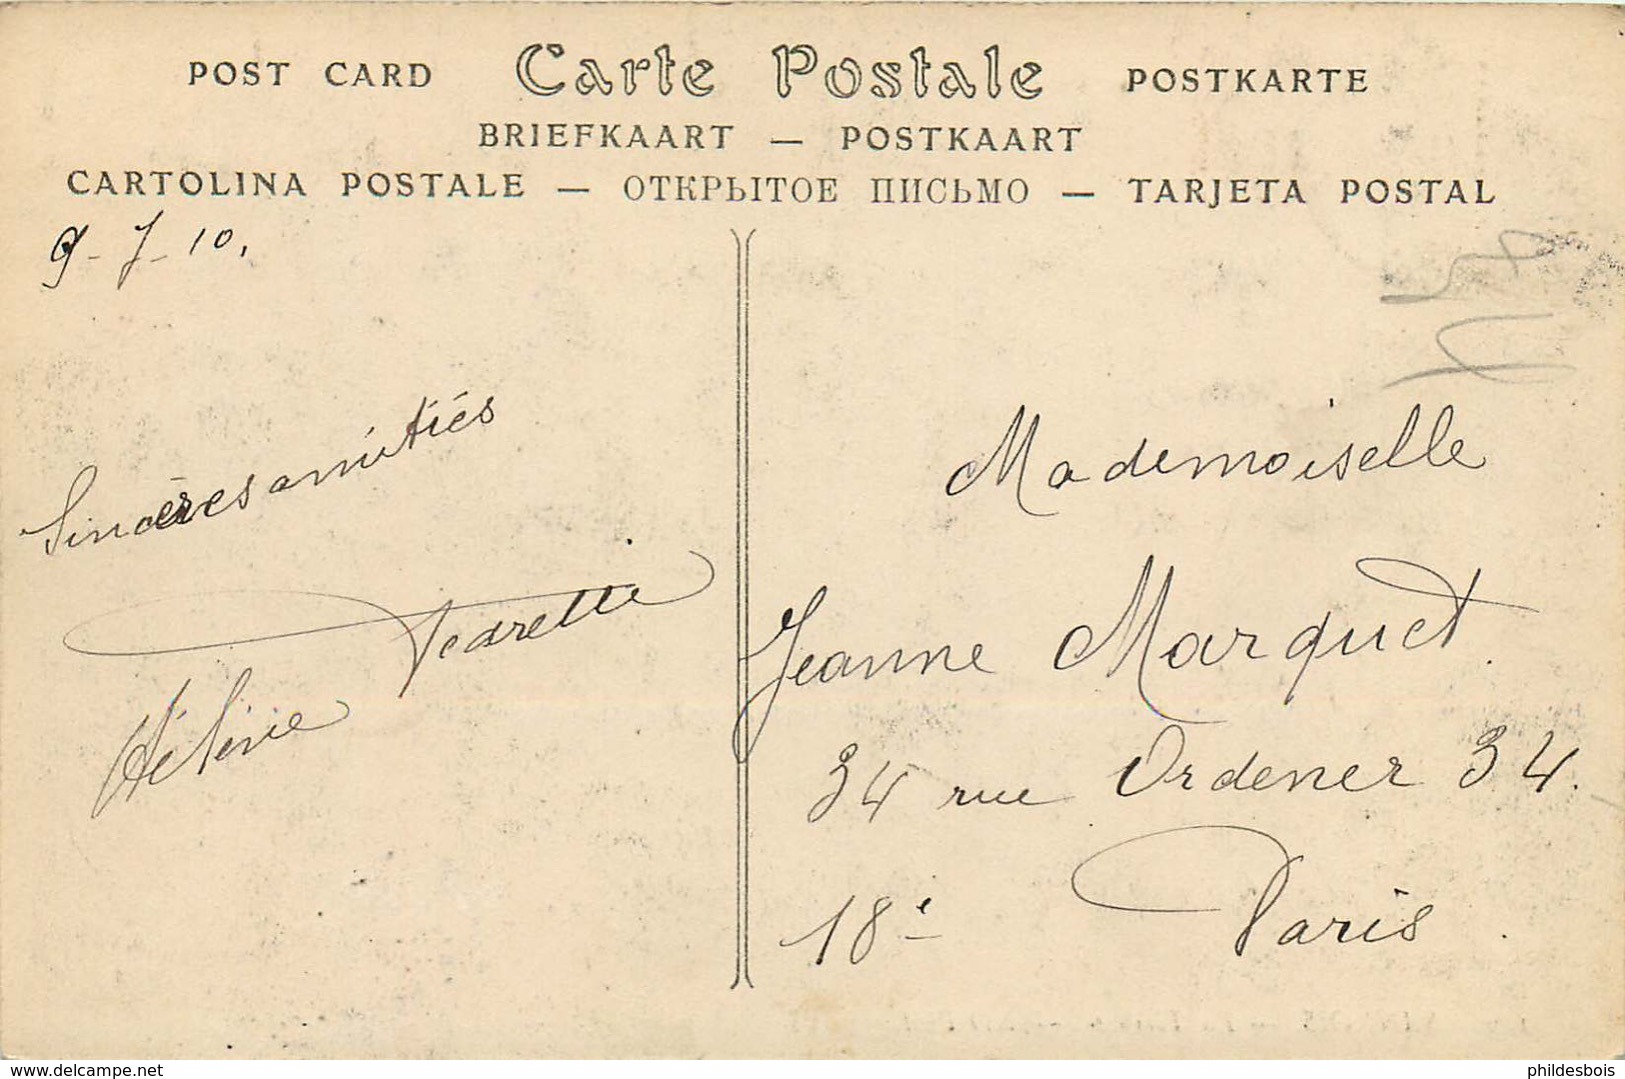 POST CARD Carte Postale POSTKARTE
BRIEFKAART — POSTKAART
CARTOLINA POSTALE — ОТКРЫТОЕ ПИСЬМО — TARJETA POSTAL
9-7-10.
Sincères amitiés
Hélène
Mademoiselle
Jeanne Marquet
34 rue Ordener 34.
18e Paris.
www.delcampe.net
phildesbois